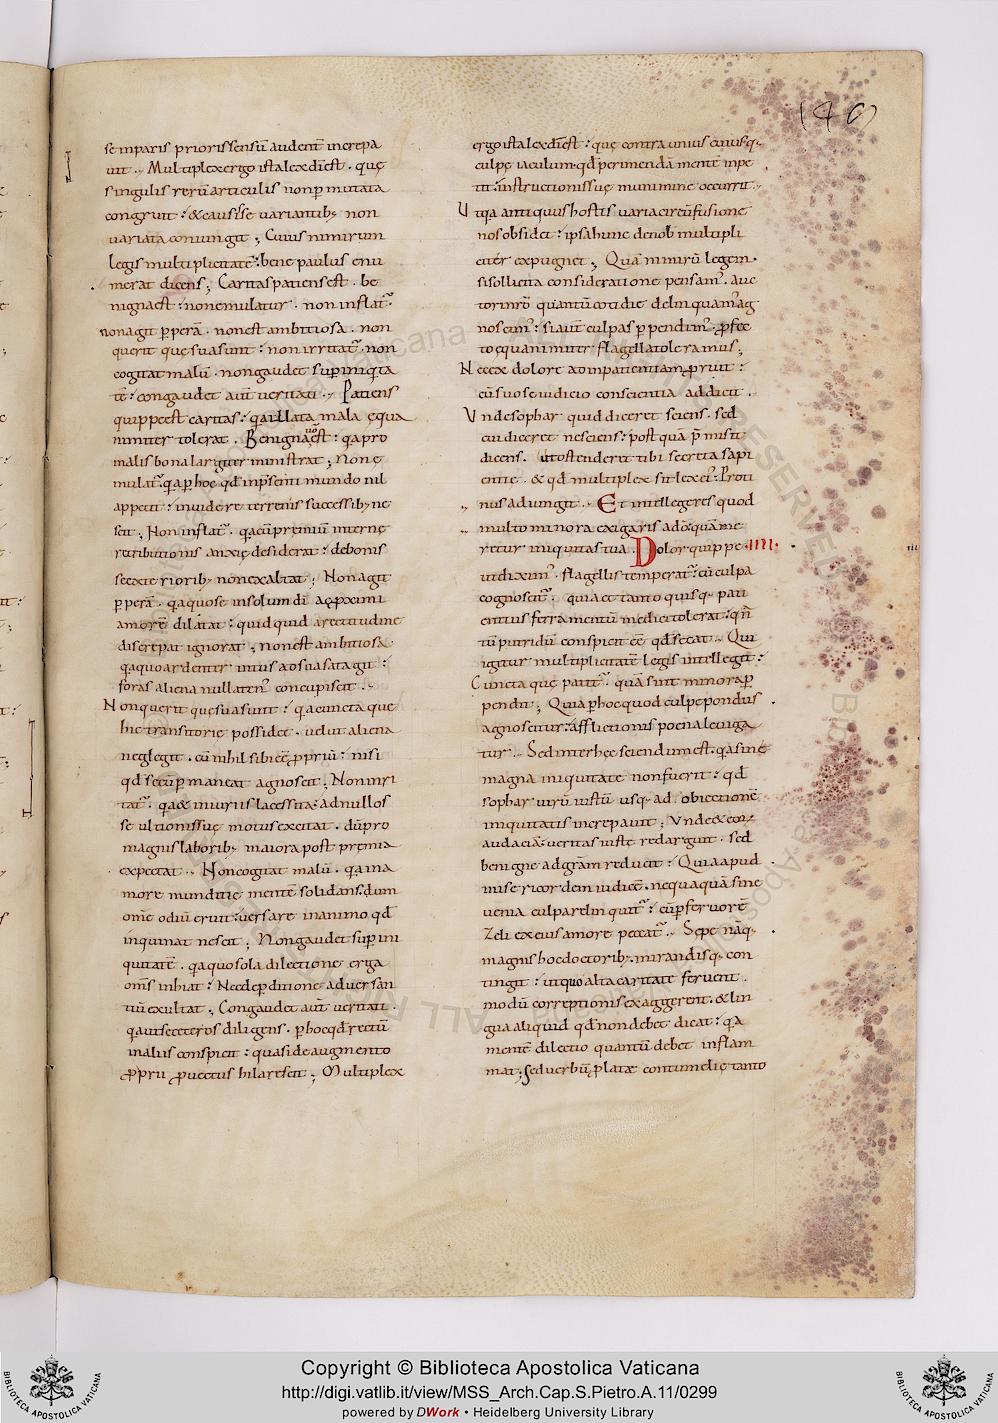 146
se imparis prioris sensū audent̄ increpa
uit. Multiplex ergo ista lex dī est. quę
singulis rerū articulis non p̄mutata
congruit: & causis se variantib; non
uariata coniungit; Cuius nimirum
legis multiplicitatē bene paulus enu
merat dicens; Caritas patiens est. be
nigna est: non emulatur. non inflat̄.
non agit pperā. non est ambitiosa. non
querit quę sua sunt: non irritat̄. non
cogitat malū. non gaudet sup iniqta
tē: congaudet aut̄ veritati. Patiens
quippe est caritas: qa illata mala ęqua
nimiter tolerat. Benigna uo est: qa pro
malis bona largiter ministrat; Non ę
mulat̄. qa p hoc qd in p̄senti mundo nil
appetit: inuidere terrenis successib; ne
scit; Non inflat̄. qa cū p̄mium internę
retributionis anxię desiderat: de bonis
se exteriorib; non exaltat; Non agit
pperā. qa quo se in solum dī ac pximi
amorē dilatat: quidquid a rectitudine
discrepat ignorat; non est ambitiosa.
qa quo ardenter intus ad sua satagit:
foras aliena nullaten' concupiscit.
Non querit quę sua sunt: qa cuncta que
hic transitorię possidet. uelut aliena
neglegit. cū nihil sibi eē ppriū: nisi
qd secū pmaneat agnoscit; Non irri
tat̄. qa & iniuriis lacessita: ad nullos
se ultionis suę motus excitat. dū pro
magnis laborib; maiora post p̄mia
expectat. Non cogitat malū. qa in a
more munditię mentē solidans. dum
omē odiū eruit: versare in animo qd
inquinat nescit; Non gaudet sup ini
quitatē. qa quo sola dilectione erga
om̄s inhiat: Nec de pditione aduersan
tiū exultat; Congaudet aut̄ veritati:
qa ut se ceteros diligens. p hoc qd rectū
in aliis conspicit: quasi de augmento
pprii puectus hilarescit; Multiplex
ergo ista lex dī est: quę contra unius cuiusq;
culpę iaculum. qd perimendā mentē inpe
tit: instructionis suę munimine occurrit.
Ut qa antiquus hostis uaria circūfusione
nos obsidet: ipsa hunc de nob multipli
citer expugnet; Quā nimirū legem.
si sollicita consideratione pensam'. auc
tori nr̄o quantū cotidie delinquam' ag
noscim': si aut̄ culpas ppendim'. pfec
to equanimiter flagella toleramus;
Nec ex dolore ad inpatientiam pruit:
cū suo se iudicio conscientia addicit.
Unde sophar quid diceret sciens. sed
cui diceret nesciens: postquā p̄misit
dicens. ut ostenderet tibi secreta sapi
entię. & qd multiplex sit lex ei': Proti
nus adiungit. Et intellegeres quod
multo minora exigaris ad eo quā me
retur iniquitas tua. Dolor quippe. IIII.
ut dixim'. flagellis temperat̄. cū culpa
cognoscit̄. quia et tanto quisq; pati
entius ferramentū medici tolerat: qn̄
tū putridū conspicit eē qd secat. Qui
igitur multiplicitatē legis intellegit:
Cuncta que patit̄. quā sint minora p
pendit; Quia p hoc quod culpe pondus
agnoscitur: afflictionis poena leuiga
tur. Sed inter hęc sciendum est. qa sine
magna iniquitate non fuerit: qd
sophar uirū iustū usq; ad obiectionē
iniquitatis increpauit; Unde & eor
audaciā veritas iuste redarguit. sed
benigne ad grām reducit: Quia apud
misericordem iudicē. nequaquā sine
uenia culpa relinquit̄: cū p feruorē
zeli ex eius amore peccat̄. Sepe nāq;
magnis hoc doctorib; mirandisq; con
tingit: ut quo alta caritate feruent.
modū correptionis exaggerent. & lin
gua aliquid qd non debet dicat: qa
mentē dilectio quantū debet inflam
mat; Sed uerbū platæ contumelię tanto
III
Copyright © Biblioteca Apostolica Vaticana
http://digi.vatlib.it/view/MSS_Arch.Cap.S.Pietro.A.11/0299
powered by DWork • Heidelberg University Library
BIBLIOTECA APOSTOLICA VATICANA
BIBLIOTECA APOSTOLICA VATICANA